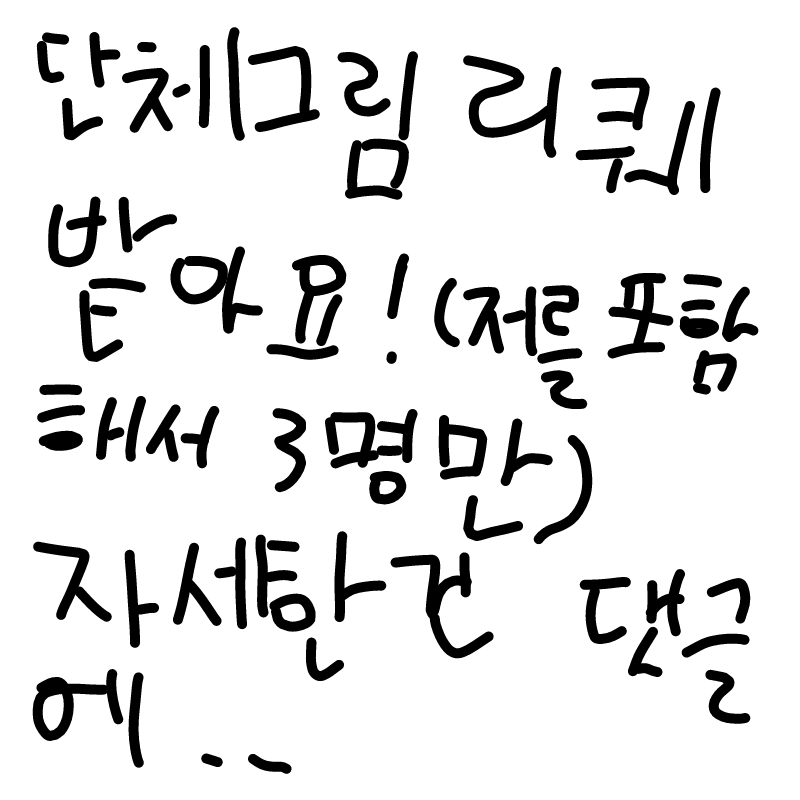 단체그림 리퀘
받아요! (저를 포함
해서 3명만)
자세한건 댓글
에..